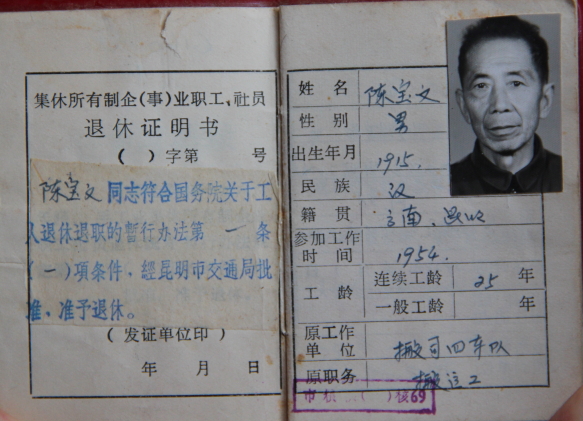 集休所有制企(事)业职工、社员
退休证明书
( )字第 号
陈宝文同志符合国务院关于工
人退休退职的暂行办法第一条
(一)项条件,经昆明市交通局批
准、准予退休。
(发证单位印)
年 月 日
姓名 陈宝文
性别 男
出生年月 1915.
民族 汉
籍贯 云南、
参加工作时间 1954.
工龄 连续工龄 25年
一般工龄 年
原工作单位 搬司四车队
原职务 搬运工
市 69